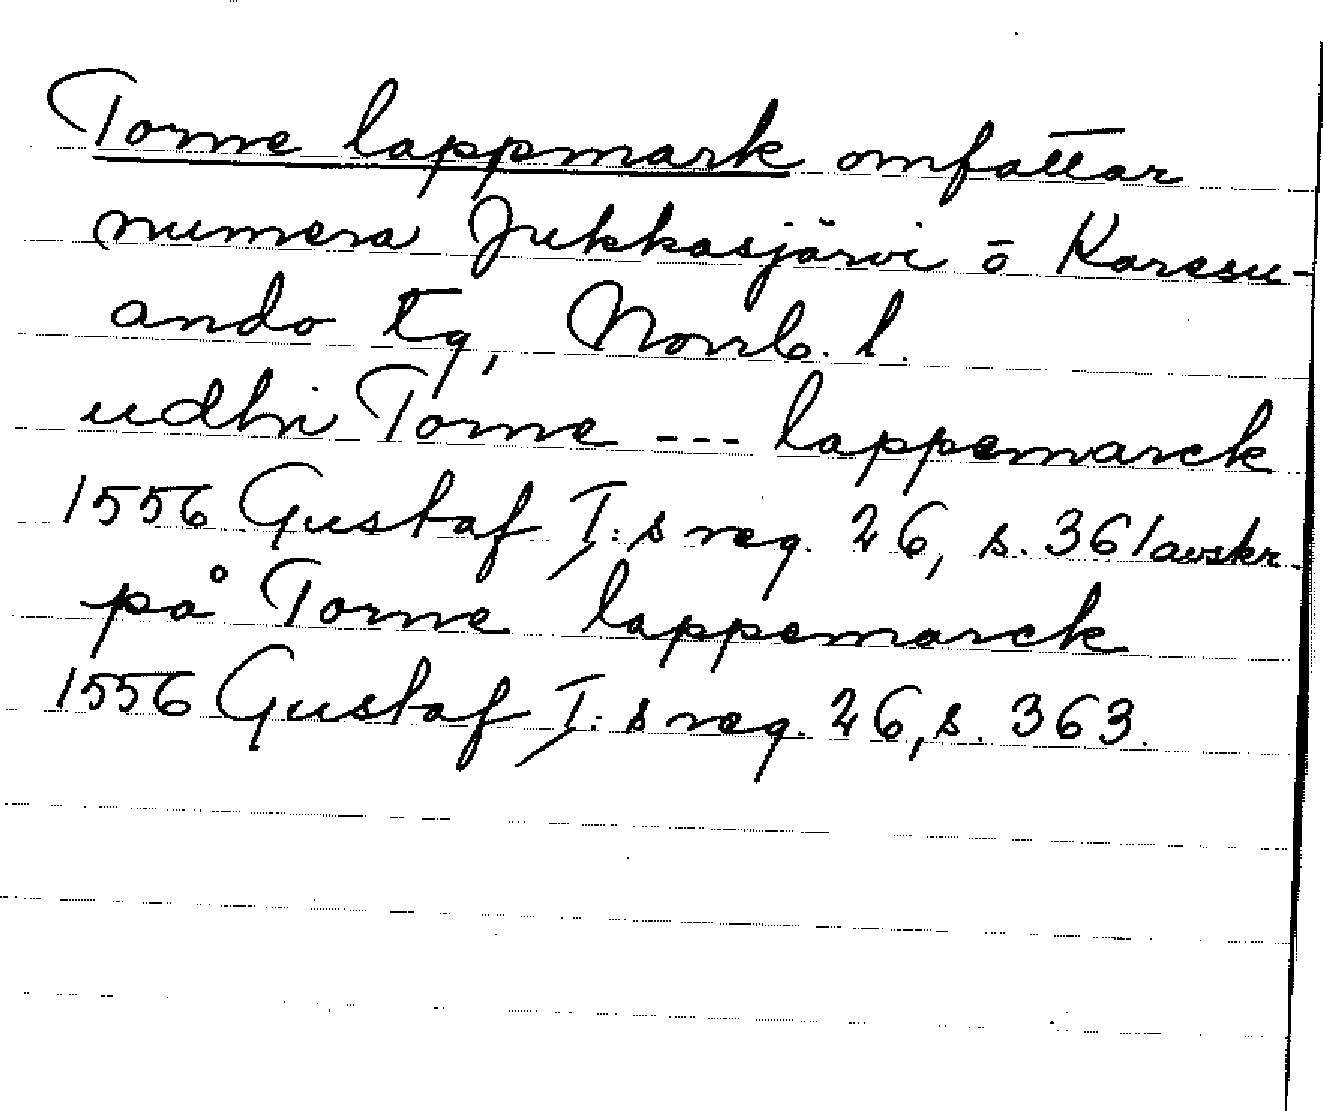 Torne lappmark omfattar
numera Jukkasjärvi o Karesu-
ando tg, Norrb. l.
udhi Torne --- lappemarck
1556 Gustaf I:s reg. 26, s. 361 avskr.
på Torne lappemarck
1556 Gustaf I:s reg. 26, s. 363.